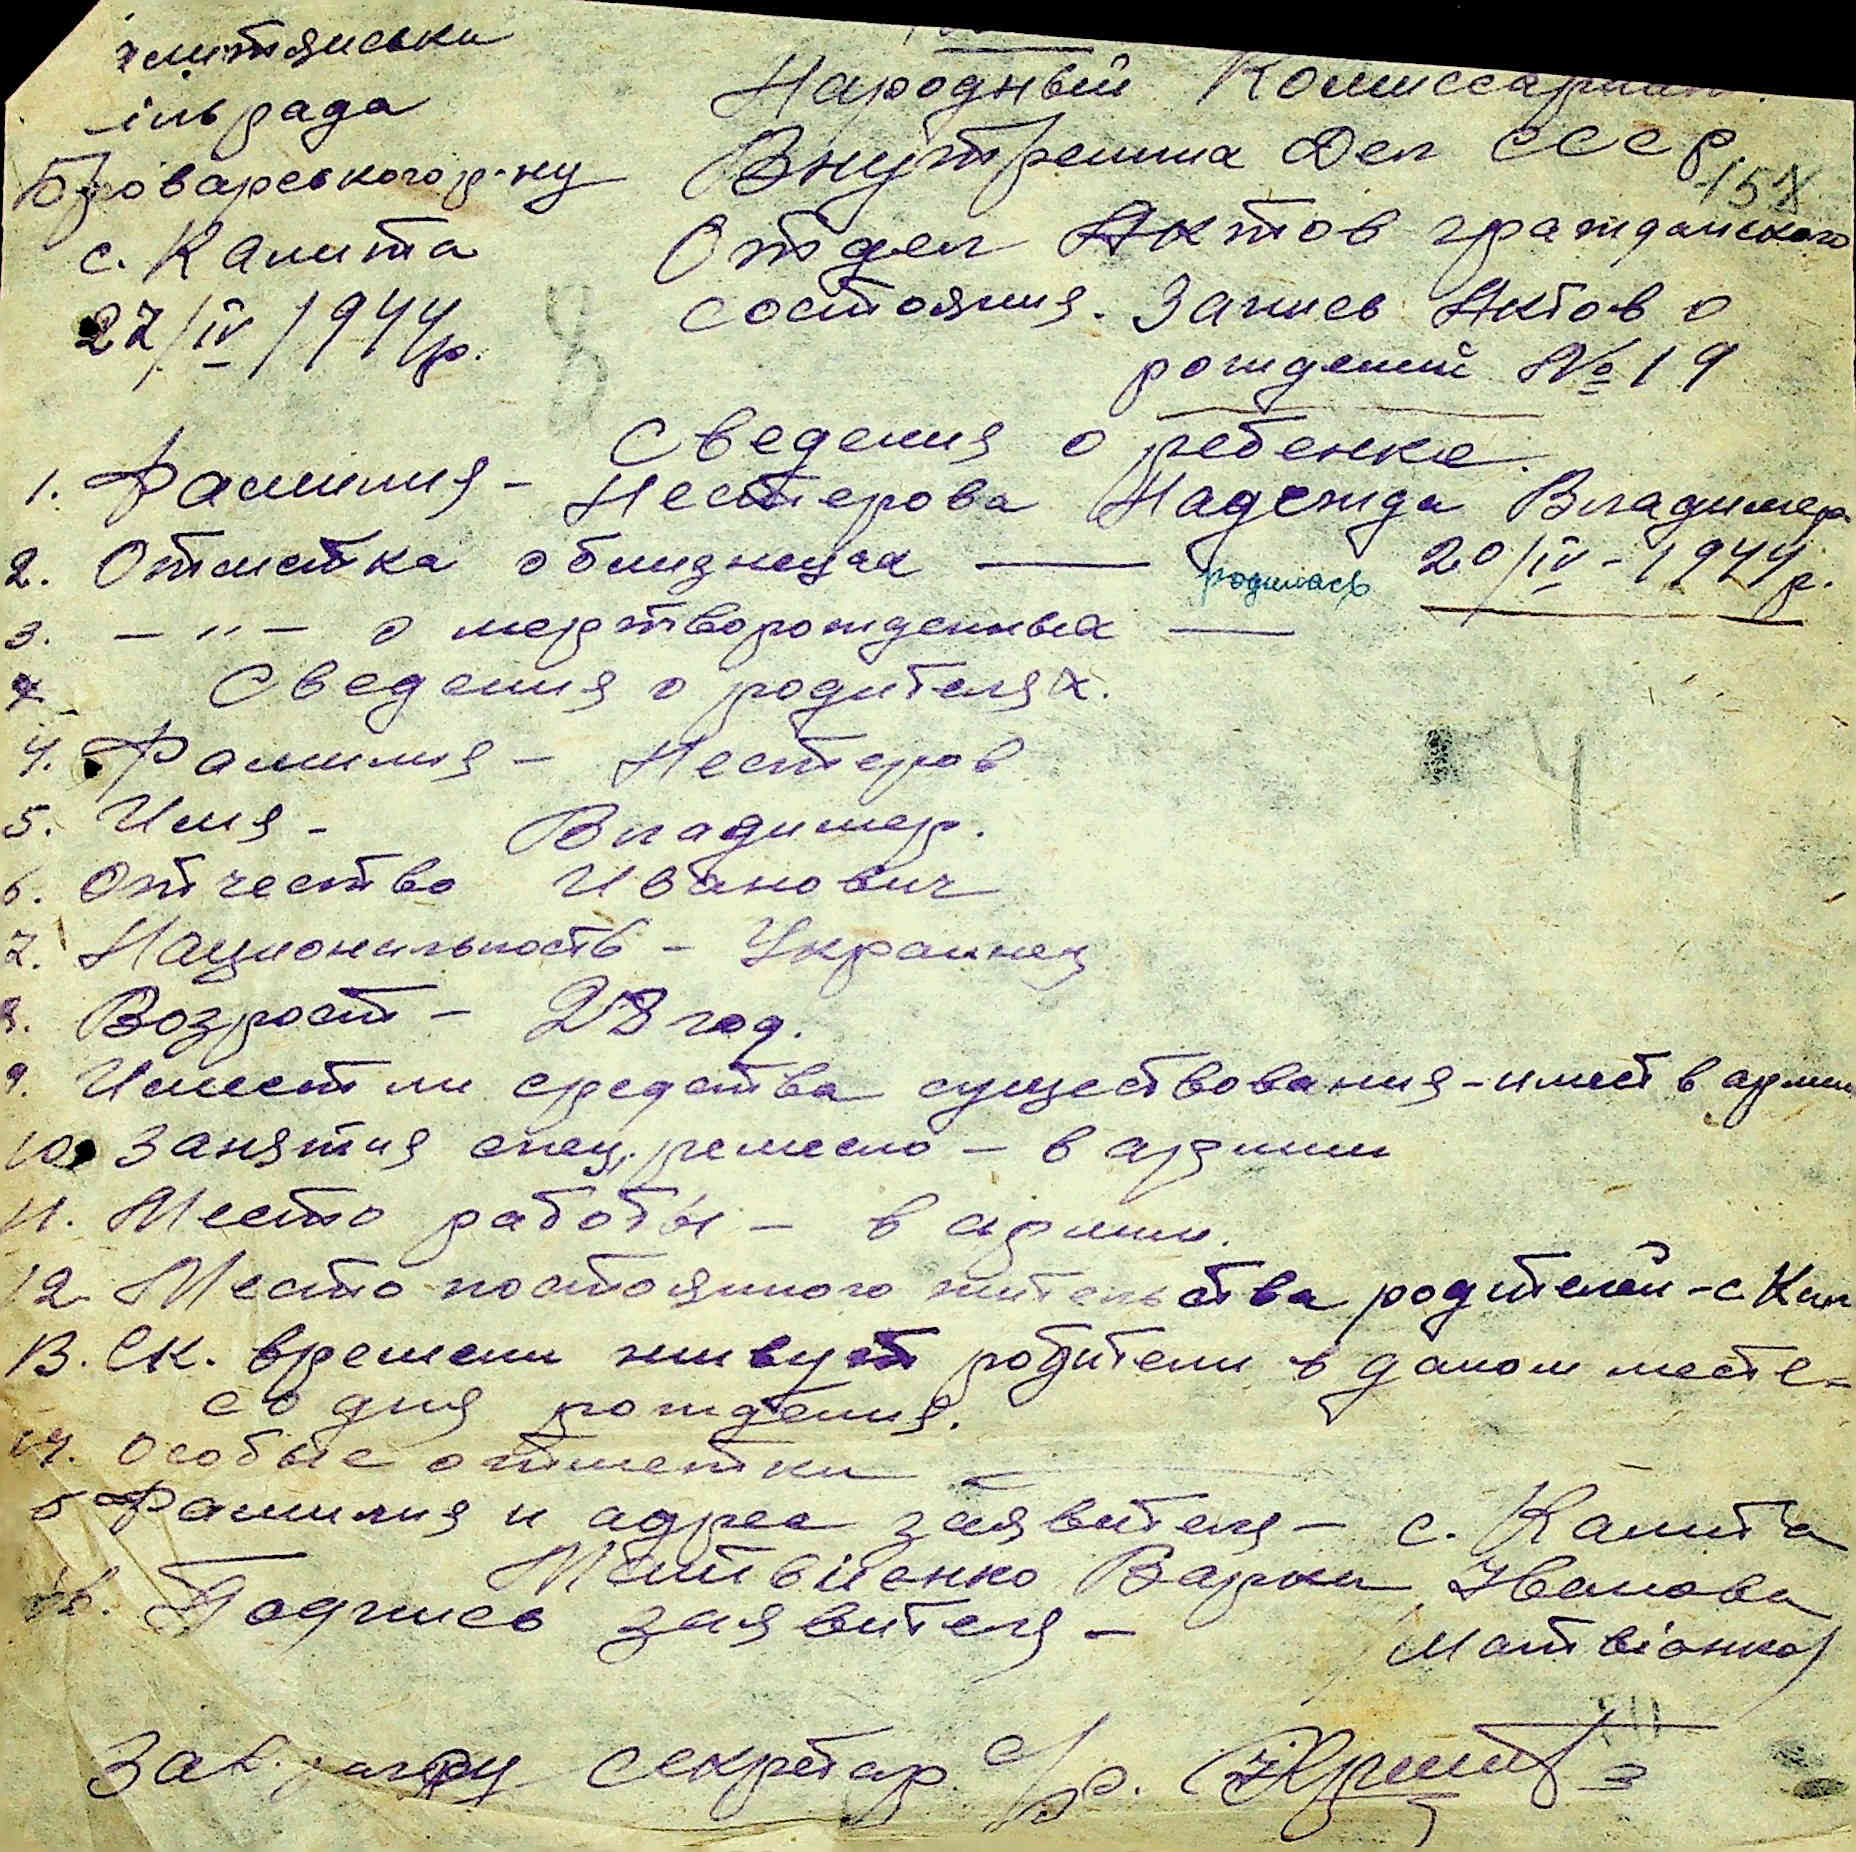 їлитянська
сільрада
Броварського р-ну
с. Калита
27/IV/1944р.
Народный Комиссариат
Внутренних Дел СССР
158
Отдел Актов гражданского
состояния. Запись Актов о
рождений № 19
Сведения о ребенке.
1. Фамилия - Нестерова Надежда Владимер.
2. Отметка о близнецах — родилась 20/IV-1944р.
3. — " — о мертворожденных —
Сведения о родителях.
4. Фамилия - Нестеров
5. Имя - Владимер.
6. Отчество Иванович
7. Национальность - Украинец
8. Возрост - 28 год.
9. Имеет ли средства существования - имеет в армии
10. Занятия спец. ремесло - в армии
11. Место работы - в армии.
12. Место постоянного жительства родителей - с. Кал
13. Ск. времени живут родители в даном месте -
со дня рождения.
14. Особые отметки —
15 Фамилия и адрес заявителя - с. Калита
Матвієнко Варка Иванова
16. Подпись заявителя - Матвіэнко
Зав. секретар с/р.